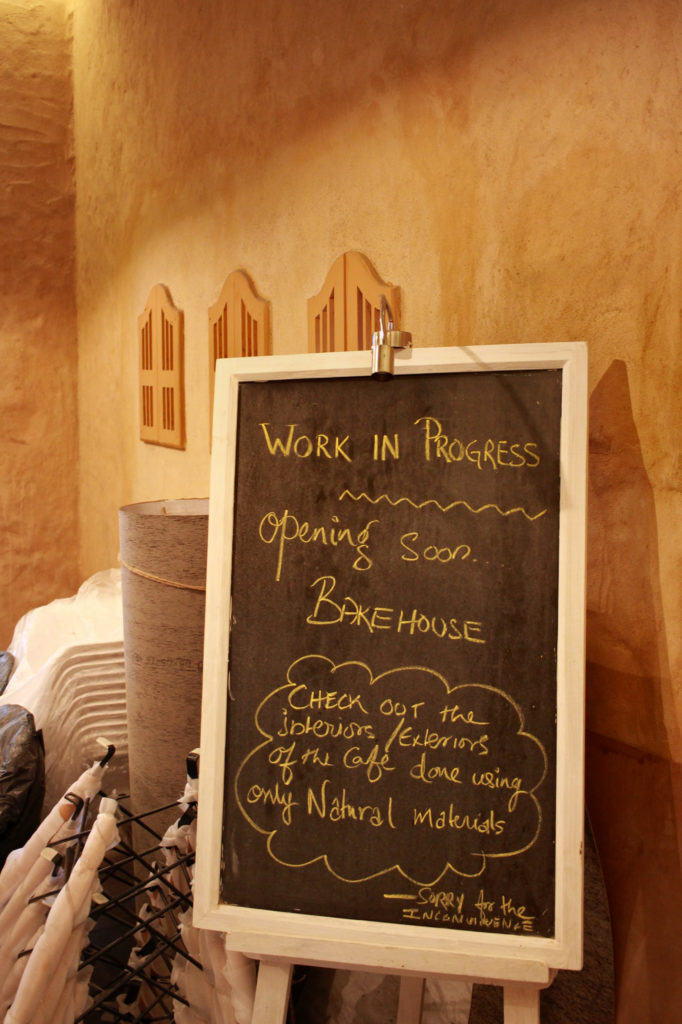 WORK IN PROGRESS
Opening Soon...
BAKEHOUSE
CHECK OUT the
interiors/Exteriors
of the Café done using
only Natural materials
—SORRY for the
INCONVINENCE